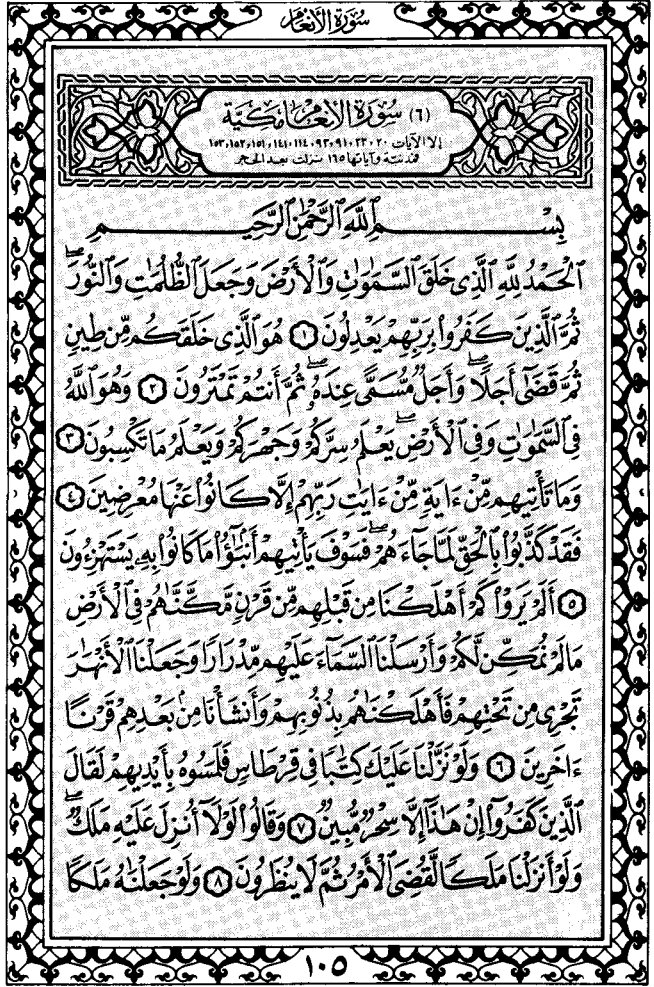 سُورَةُ الأَنْعَام
(٦) سُورَةُ الأَنْعَامِ مَكِّيَّة
إلا الآيات ٢٠، ٢٣، ٩١، ٩٣، ١١٤، ١٤١، ١٥١، ١٥٢، ١٥٣
فمدنية وآياتها ١٦٥ نزلت بعد الحجر
بِسْمِ ٱللَّهِ ٱلرَّحْمَٰنِ ٱلرَّحِيمِ
ٱلْحَمْدُ لِلَّهِ ٱلَّذِى خَلَقَ ٱلسَّمَٰوَٰتِ وَٱلْأَرْضَ وَجَعَلَ ٱلظُّلُمَٰتِ وَٱلنُّورَۖ
ثُمَّ ٱلَّذِينَ كَفَرُوا۟ بِرَبِّهِمْ يَعْدِلُونَ ١ هُوَ ٱلَّذِى خَلَقَكُم مِّن طِينٍ
ثُمَّ قَضَىٰٓ أَجَلًاۖ وَأَجَلٌ مُّسَمًّى عِندَهُۥۖ ثُمَّ أَنتُمْ تَمْتَرُونَ ٢ وَهُوَ ٱللَّهُ
فِى ٱلسَّمَٰوَٰتِ وَفِى ٱلْأَرْضِۖ يَعْلَمُ سِرَّكُمْ وَجَهْرَكُمْ وَيَعْلَمُ مَا تَكْسِبُونَ ٣
وَمَا تَأْتِيهِم مِّنْ ءَايَةٍ مِّنْ ءَايَٰتِ رَبِّهِمْ إِلَّا كَانُوا۟ عَنْهَا مُعْرِضِينَ ٤
فَقَدْ كَذَّبُوا۟ بِٱلْحَقِّ لَمَّا جَآءَهُمْۖ فَسَوْفَ يَأْتِيهِمْ أَنۢبَٰٓؤُا۟ مَا كَانُوا۟ بِهِۦ يَسْتَهْزِءُونَ
٥ أَلَمْ يَرَوْا۟ كَمْ أَهْلَكْنَا مِن قَبْلِهِم مِّن قَرْنٍ مَّكَّنَّٰهُمْ فِى ٱلْأَرْضِ
مَا لَمْ نُمَكِّن لَّكُمْ وَأَرْسَلْنَا ٱلسَّمَآءَ عَلَيْهِم مِّدْرَارًا وَجَعَلْنَا ٱلْأَنْهَٰرَ
تَجْرِى مِن تَحْتِهِمْ فَأَهْلَكْنَٰهُم بِذُنُوبِهِمْ وَأَنشَأْنَا مِنۢ بَعْدِهِمْ قَرْنًا
ءَاخَرِينَ ٦ وَلَوْ نَزَّلْنَا عَلَيْكَ كِتَٰبًا فِى قِرْطَاسٍ فَلَمَسُوهُ بِأَيْدِيهِمْ لَقَالَ
ٱلَّذِينَ كَفَرُوٓا۟ إِنْ هَٰذَآ إِلَّا سِحْرٌ مُّبِينٌ ٧ وَقَالُوا۟ لَوْلَآ أُنزِلَ عَلَيْهِ مَلَكٌۖ
وَلَوْ أَنزَلْنَا مَلَكًا لَّقُضِىَ ٱلْأَمْرُ ثُمَّ لَا يُنظَرُونَ ٨ وَلَوْ جَعَلْنَٰهُ مَلَكًا
١٠٥